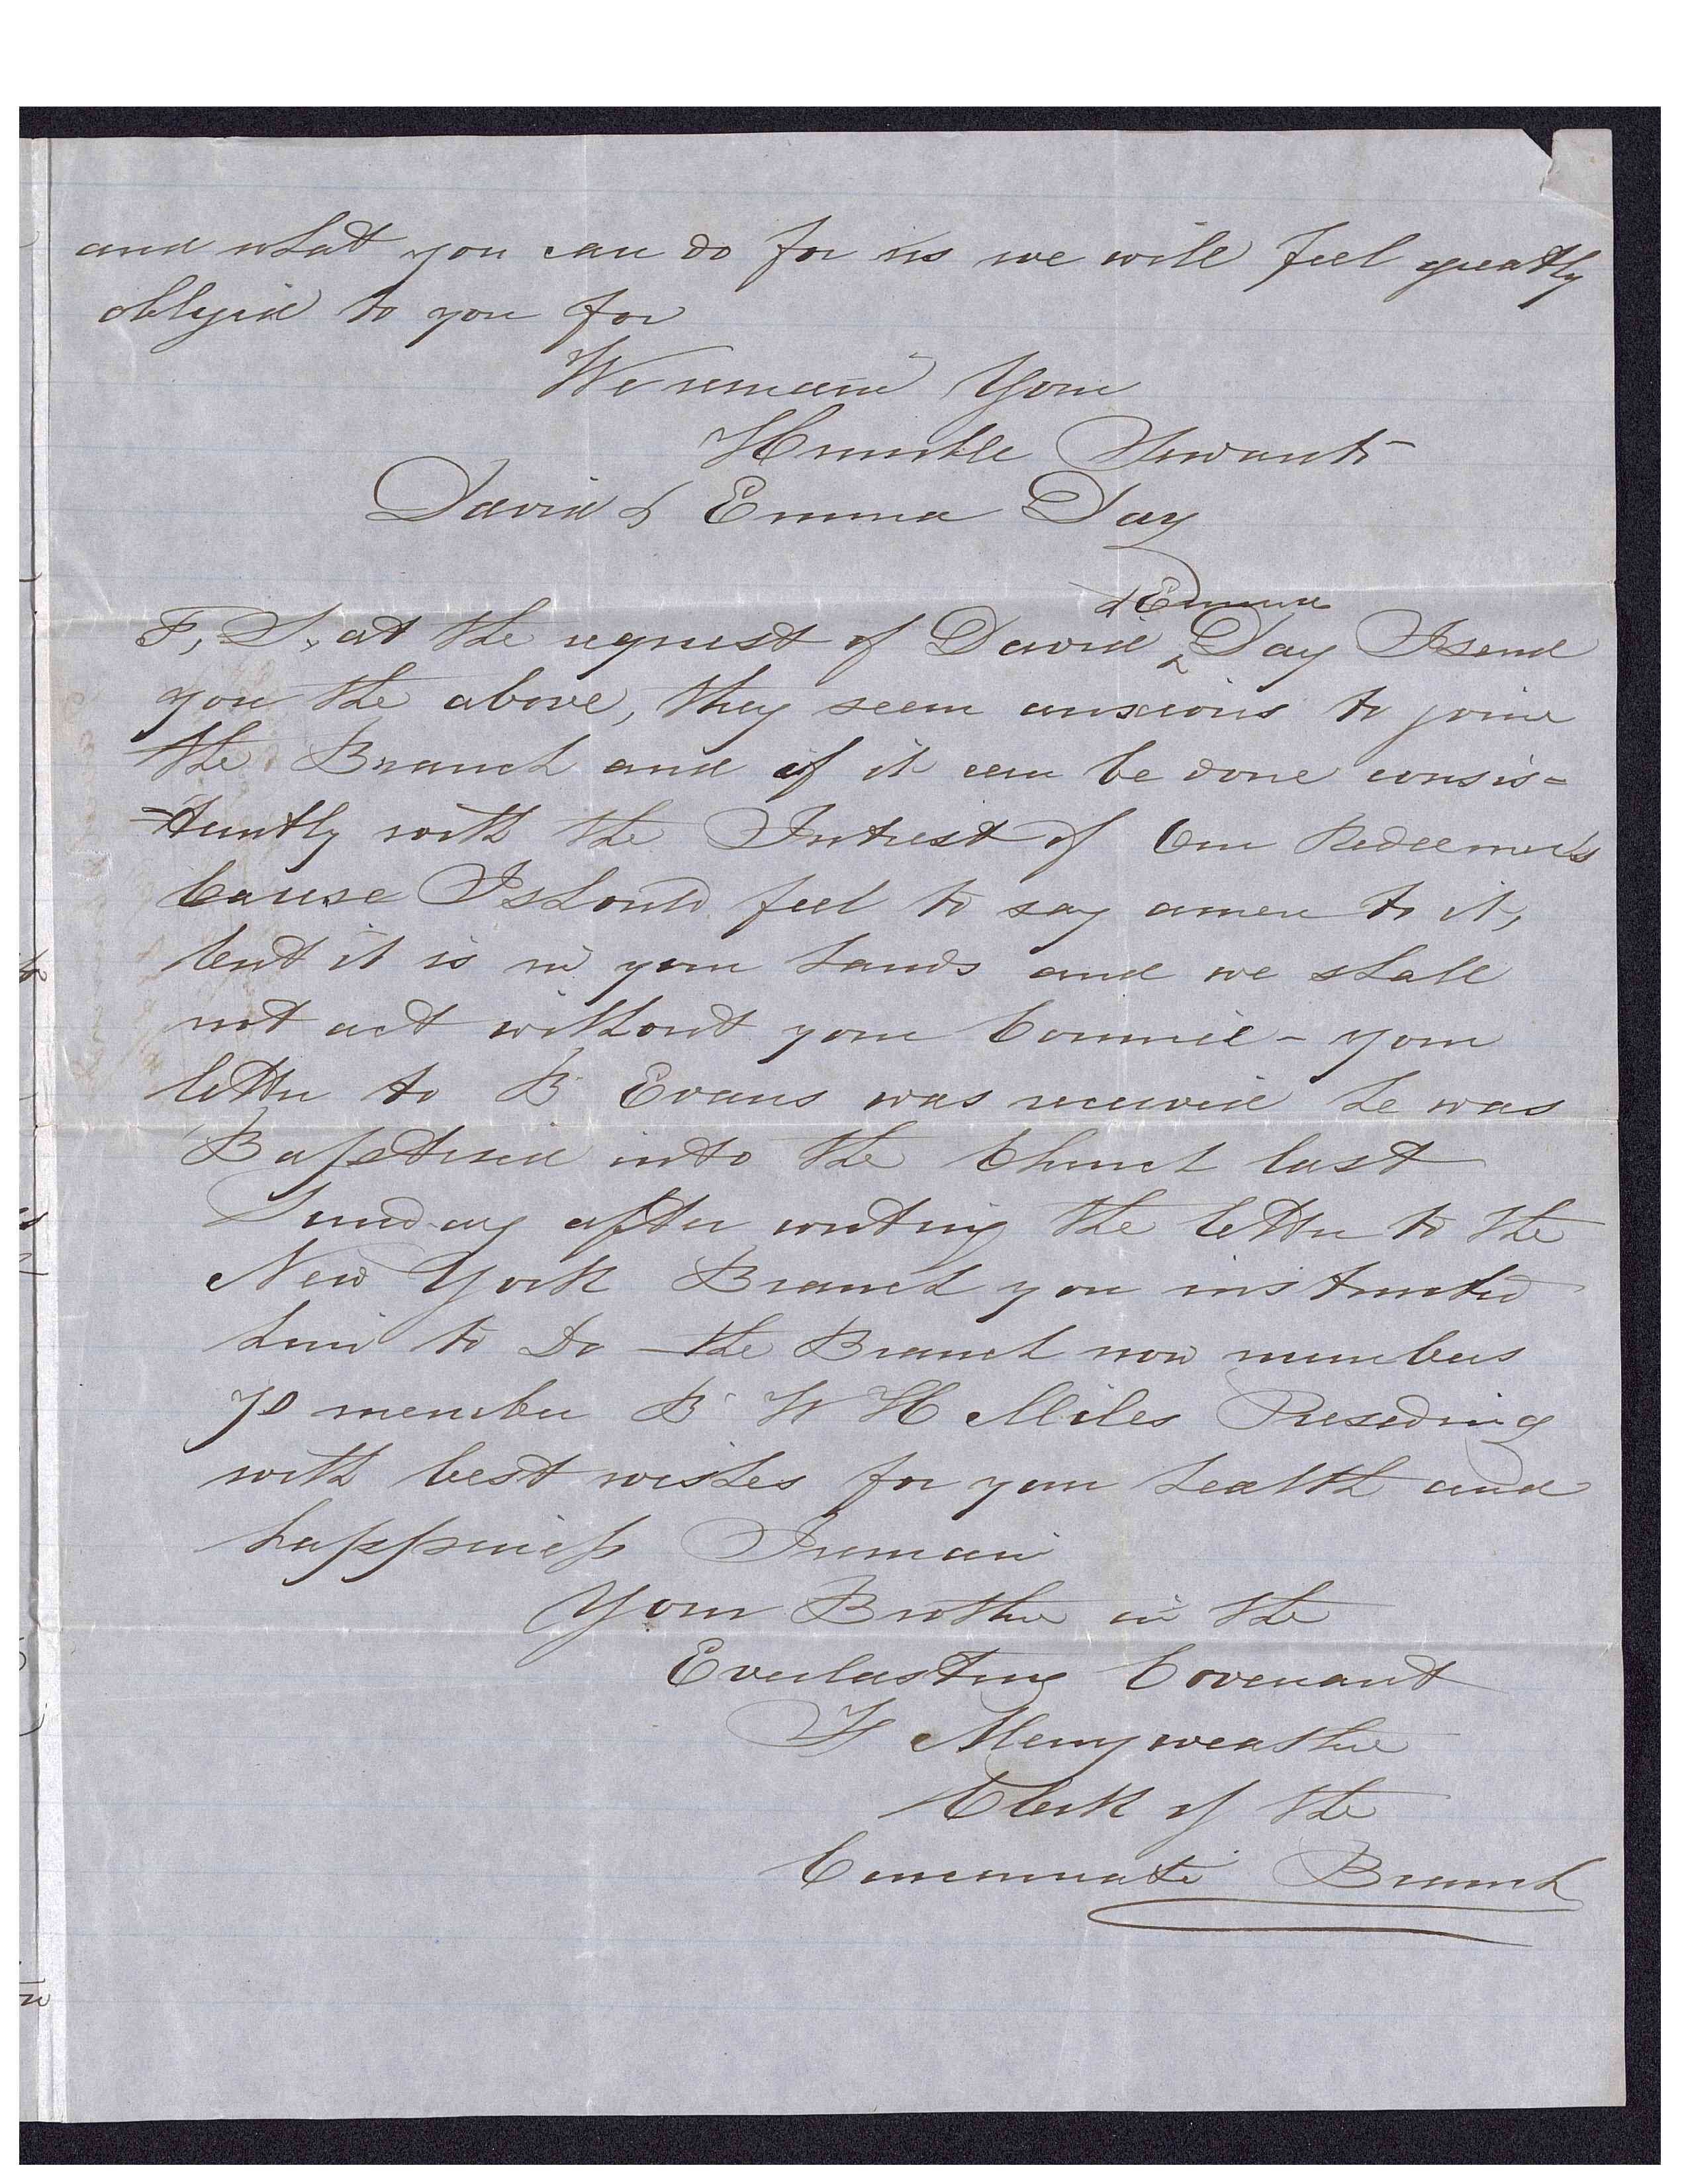 and what you can do for us we will feel greatly
obligid to you for
We remain Your
Humble Servants
David & Emma Day
& Emma
P, S, at the request of David ^ Day I send
you the above, they seem anxious to joine
the Branch and if it can be done consis=
=tuntly with the Intrest of Our Redeemer's
Cause I should feel to say amen to it,
but it is in your hands and we shall
not act without your Councel - your
letter to B Evans was received he was
Baptised into the Church last
Sunday after writing the letter to the
New York Branch you instructed
him to Do - the Branch now numbers
70 member B W H Miles Preseding
with best wishes for your health and
happiness I remain
Your Brother in the
Everlasting Covenant
F Merryweather
Clerk of the
Cincinnati Branch